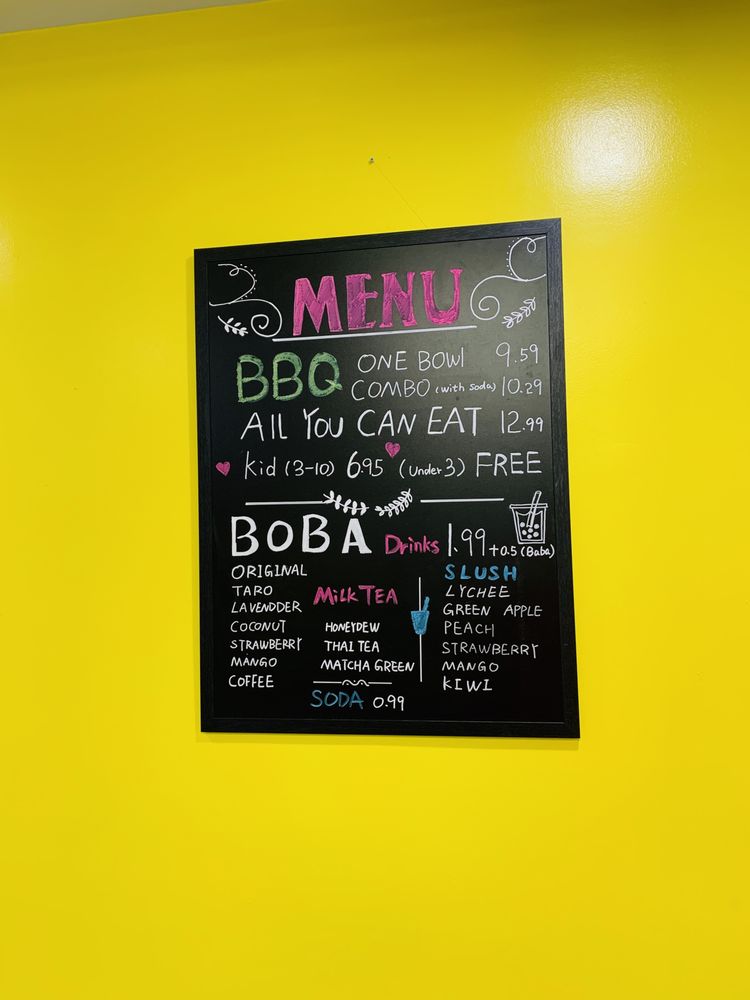 MENU
BBQ ONE BOWl 9.59
COMBO (with soda) 10.29
All YOU CAN EAT 12.99
kid (3-10) 6.95 (under 3) FREE
BOBA Drinks 1.99 +0.5 (Baba)
ORIGINAL
TARO
LAVENDDER
COCONUT
STRAWBERRY
MANGO
COFFEE
MilK TEA
HONEYDEW
THAI TEA
MATCHA GREEN
SODA 0.99
SLUSH
LYCHEE
GREEN APPLE
PEACH
STRAWBERRY
MANGO
KIWI